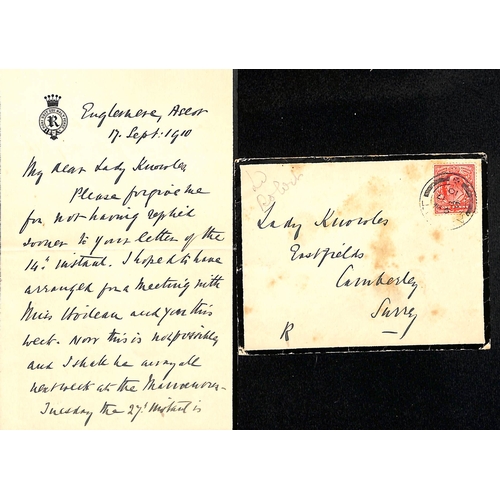 R
Englemere, Ascot
17. Sept: 1910
My dear Lady Knowles
Please forgive me
for not having replied
sooner to your letter of the
14th instant. I hoped to have
arranged for a meeting with
Miss and you this
week. Now this is not possible,
and I shall be away all
next week at the Manoeuvres
Tuesday the 27th instant is
Lady Knowles
Eastfields,
Camberley,
Surrey
R